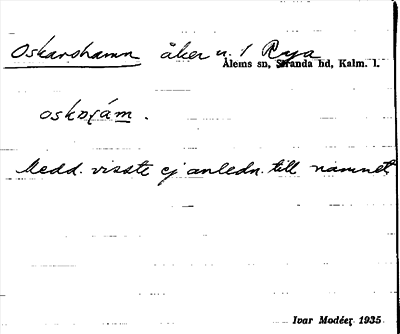 Oskarshamn åker n. 1 Rya
Ålems sn, Stranda hd, Kalm. l.
oskɒʂám.
Medd. visste ej anledn. till namnet
Ivar Modéer 1935